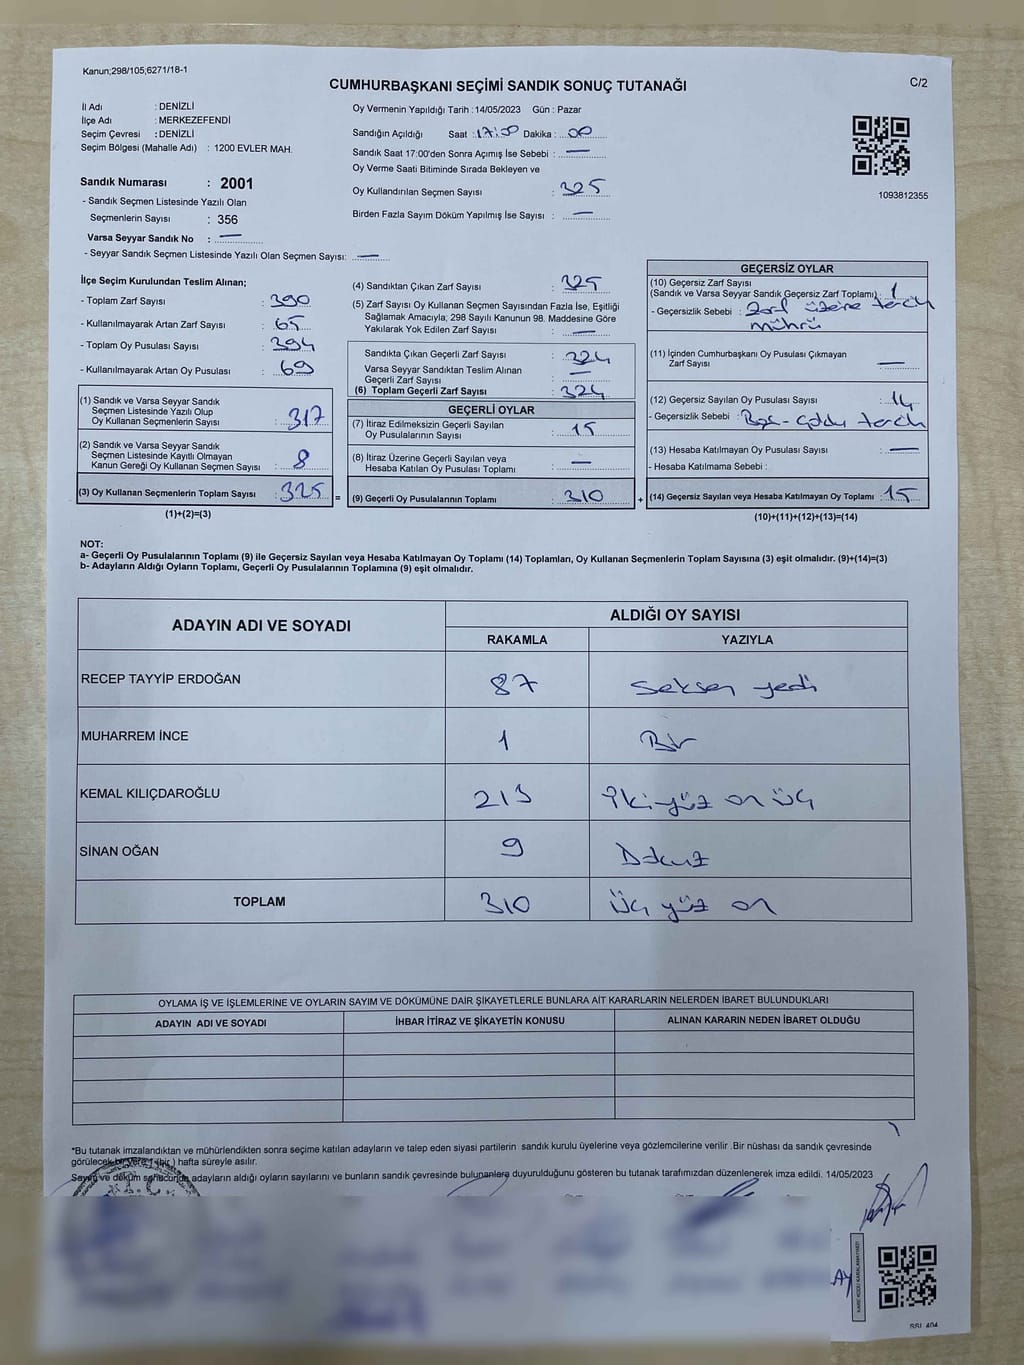 Kanun;298/105;6271/18-1
CUMHURBAŞKANI SEÇİMİ SANDIK SONUÇ TUTANAĞI
C/2
İl Adı : DENİZLİ
İlçe Adı : MERKEZEFENDİ
Seçim Çevresi : DENİZLİ
Seçim Bölgesi (Mahalle Adı) : 1200 EVLER MAH.
Sandık Numarası : 2001
- Sandık Seçmen Listesinde Yazılı Olan
Seçmenlerin Sayısı : 356
Varsa Seyyar Sandık No : —
- Seyyar Sandık Seçmen Listesinde Yazılı Olan Seçmen Sayısı: —
Oy Vermenin Yapıldığı Tarih : 14/05/2023 Gün : Pazar
Sandığın Açıldığı Saat : Dakika : 00
Sandık Saat 17:00'den Sonra Açımış İse Sebebi : —
Oy Verme Saati Bitiminde Sırada Bekleyen ve
Oy Kullandırılan Seçmen Sayısı : 325
Birden Fazla Sayım Döküm Yapılmış İse Sayısı : —
1093812355
İlçe Seçim Kurulundan Teslim Alınan;
- Toplam Zarf Sayısı : 390
- Kullanılmayarak Artan Zarf Sayısı : 65
- Toplam Oy Pusulası Sayısı : 394
- Kullanılmayarak Artan Oy Pusulası : 69
(1) Sandık ve Varsa Seyyar Sandık
Seçmen Listesinde Yazılı Olup
Oy Kullanan Seçmenlerin Sayısı : 317
(2) Sandık ve Varsa Seyyar Sandık
Seçmen Listesinde Kayıtlı Olmayan
Kanun Gereği Oy Kullanan Seçmen Sayısı : 8
(3) Oy Kullanan Seçmenlerin Toplam Sayısı : 325 =
(1)+(2)=(3)
(4) Sandıktan Çıkan Zarf Sayısı : 325
(5) Zarf Sayısı Oy Kullanan Seçmen Sayısından Fazla İse, Eşitliği
Sağlamak Amacıyla; 298 Sayılı Kanunun 98. Maddesine Göre
Yakılarak Yok Edilen Zarf Sayısı : —
Sandıkta Çıkan Geçerli Zarf Sayısı : 324
Varsa Seyyar Sandıktan Teslim Alınan
Geçerli Zarf Sayısı : —
(6) Toplam Geçerli Zarf Sayısı : 324
GEÇERLİ OYLAR
(7) İtiraz Edilmeksizin Geçerli Sayılan
Oy Pusulalarının Sayısı : 15
(8) İtiraz Üzerine Geçerli Sayılan veya
Hesaba Katılan Oy Pusulası Toplamı : —
(9) Geçerli Oy Pusulalarının Toplamı : 310 +
GEÇERSİZ OYLAR
(10) Geçersiz Zarf Sayısı
(Sandık ve Varsa Seyyar Sandık Geçersiz Zarf Toplamı) : 1
- Geçersizlik Sebebi : Zarf üzerine tercih
mührü
(11) İçinden Cumhurbaşkanı Oy Pusulası Çıkmayan
Zarf Sayısı : —
(12) Geçersiz Sayılan Oy Pusulası Sayısı : 14
- Geçersizlik Sebebi : Boş - çoklu tercih
(13) Hesaba Katılmayan Oy Pusulası Sayısı : —
- Hesaba Katılmama Sebebi :
(14) Geçersiz Sayılan veya Hesaba Katılmayan Oy Toplamı : 15
(10)+(11)+(12)+(13)=(14)
NOT:
a- Geçerli Oy Pusulalarının Toplamı (9) ile Geçersiz Sayılan veya Hesaba Katılmayan Oy Toplamı (14) Toplamları, Oy Kullanan Seçmenlerin Toplam Sayısına (3) eşit olmalıdır. (9)+(14)=(3)
b- Adayların Aldığı Oyların Toplamı, Geçerli Oy Pusulalarının Toplamına (9) eşit olmalıdır.
ADAYIN ADI VE SOYADI
ALDIĞI OY SAYISI
RAKAMLA YAZIYLA
RECEP TAYYİP ERDOĞAN 87 seksen yedi
MUHARREM İNCE 1 Bir
KEMAL KILIÇDAROĞLU 213 iki yüz on üç
SİNAN OĞAN 9 Dokuz
TOPLAM 310 Üç yüz on
OYLAMA İŞ VE İŞLEMLERİNE VE OYLARIN SAYIM VE DÖKÜMÜNE DAİR ŞİKAYETLERLE BUNLARA AİT KARARLARIN NELERDEN İBARET BULUNDUKLARI
ADAYIN ADI VE SOYADI İHBAR İTİRAZ VE ŞİKAYETİN KONUSU ALINAN KARARIN NEDEN İBARET OLDUĞU
*Bu tutanak imzalandıktan ve mühürlendikten sonra seçime katılan adayların ve talep eden siyasi partilerin sandık kurulu üyelerine veya gözlemcilerine verilir .Bir nüshası da sandık çevresinde
görülecek bir yere 1 (bir ) hafta süreyle asılır.
Sayım ve döküm sonucunda adayların aldığı oyların sayılarını ve bunların sandık çevresinde bulunanlara duyurulduğunu gösteren bu tutanak tarafımızdan düzenlenerek imza edildi. 14/05/2023
AY